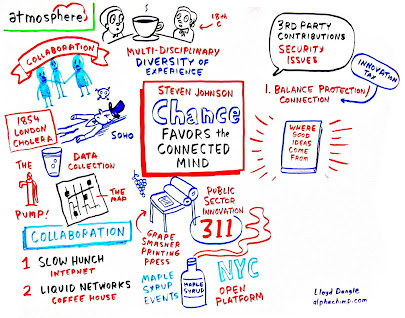 atmosphere
COLLABORATION
18th
C
MULTI-DISCIPLINARY
DIVERSITY OF
EXPERIENCE
3RD PARTY
CONTRIBUTIONS
SECURITY
ISSUES
INNOVATION
TAX
1. BALANCE PROTECTION/
CONNECTION
STEVEN JOHNSON
Chance
FAVORS the
CONNECTED
MIND
1854
LONDON
CHOLERA
SOHO
WHERE
GOOD
IDEAS
COME
FROM
THE
PUMP!
DATA
COLLECTION
THE
MAP
COLLABORATION
1 SLOW HUNCH
INTERNET
2 LIQUID NETWORKS
COFFEE HOUSE
GRAPE
SMASHER
PRINTING
PRESS
PUBLIC
SECTOR
INNOVATION
311
MAPLE
SYRUP
EVENTS
MAPLE
SYRUP
NYC
OPEN
PLATFORM
Lloyd Dangle
alphachimp.com